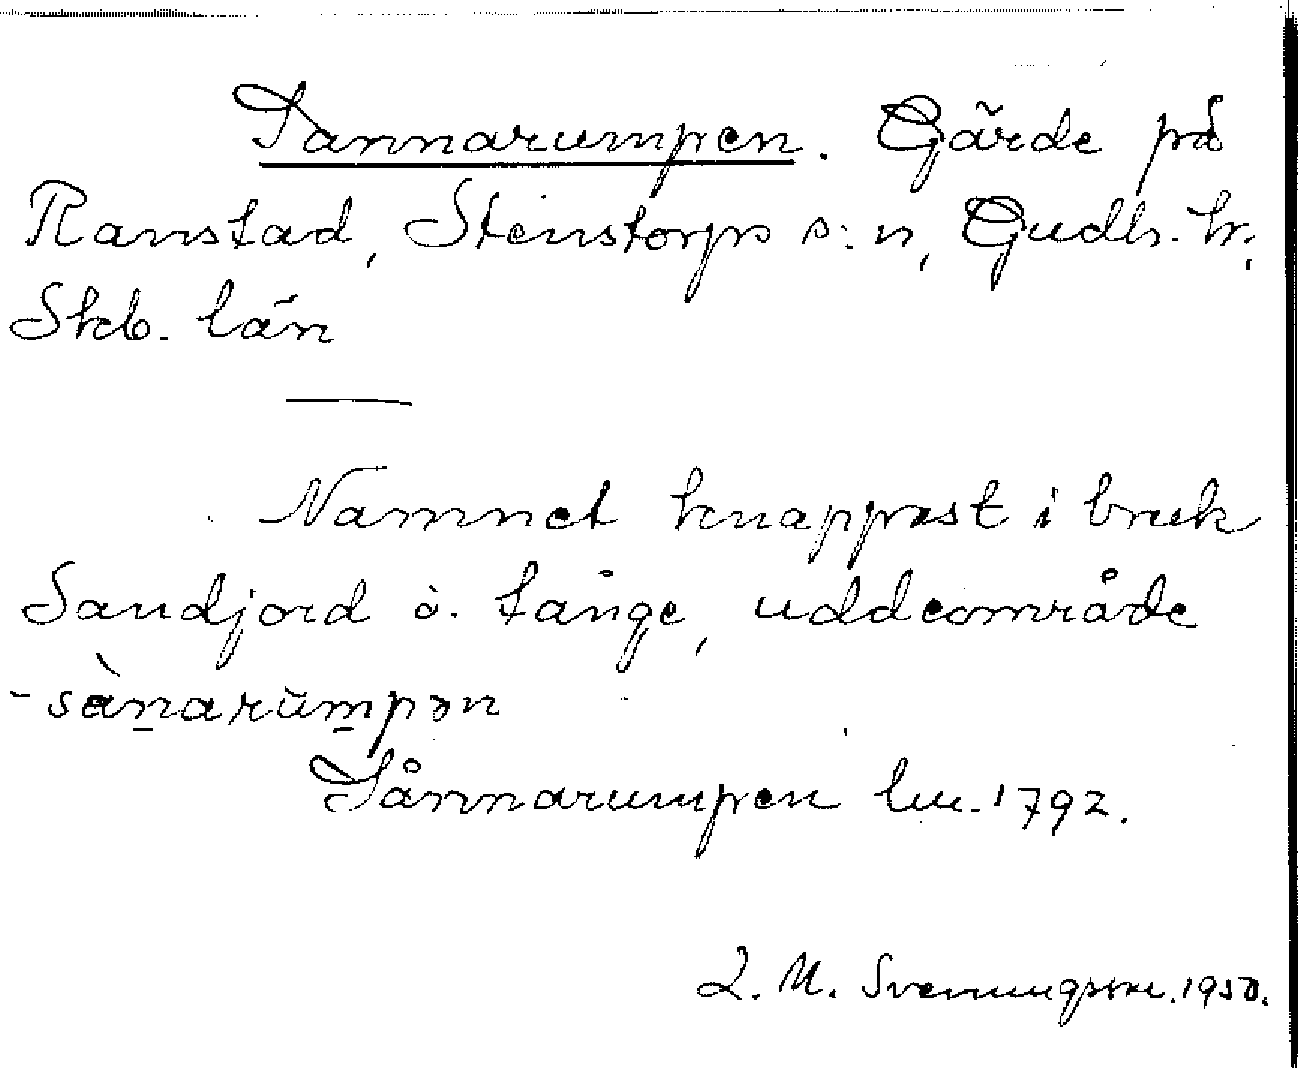 Sannarumpen. Gärde på
Ranstad, Stenstorps s:n, Gudh. hr,
Skb. län
Namnet knappast i bruk
Sandjord o. tånge, uddeområde
- sànarùmpən
Sånnarumpen lm. 1792.
L. M. Svenungsson. 1950.